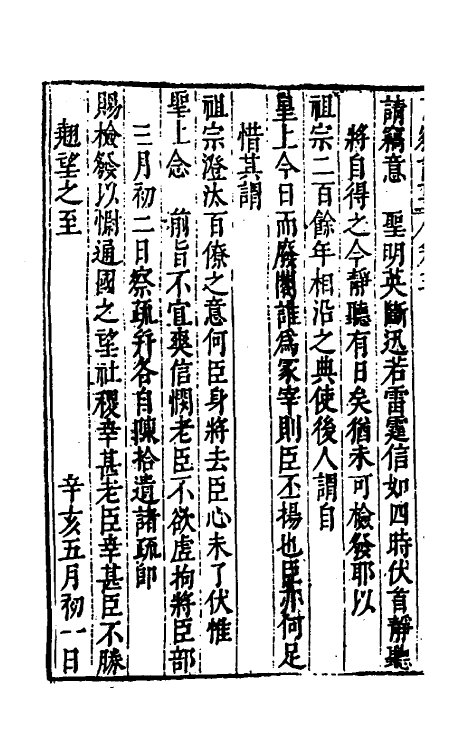 請竊意　聖明英斷迅若雷霆信如四時伏首靜聽
將自得之今靜聽有日矣猶未可檢發耶以
祖宗二百餘年相沿之典使後人謂自
皇上今日而廢閣誰爲冢宰則臣丕揚也臣亦何足
惜其謂
祖宗澄汰百僚之意何臣身將去臣心未了伏惟
聖上念　前旨不宜爽信憫老臣不欲虛拘將臣部
三月初二日察疏幷各自陳拾遺諸疏即
賜檢發以慰通國之望社稷幸甚老臣幸甚臣不勝
翹望之至　辛亥五月初一日